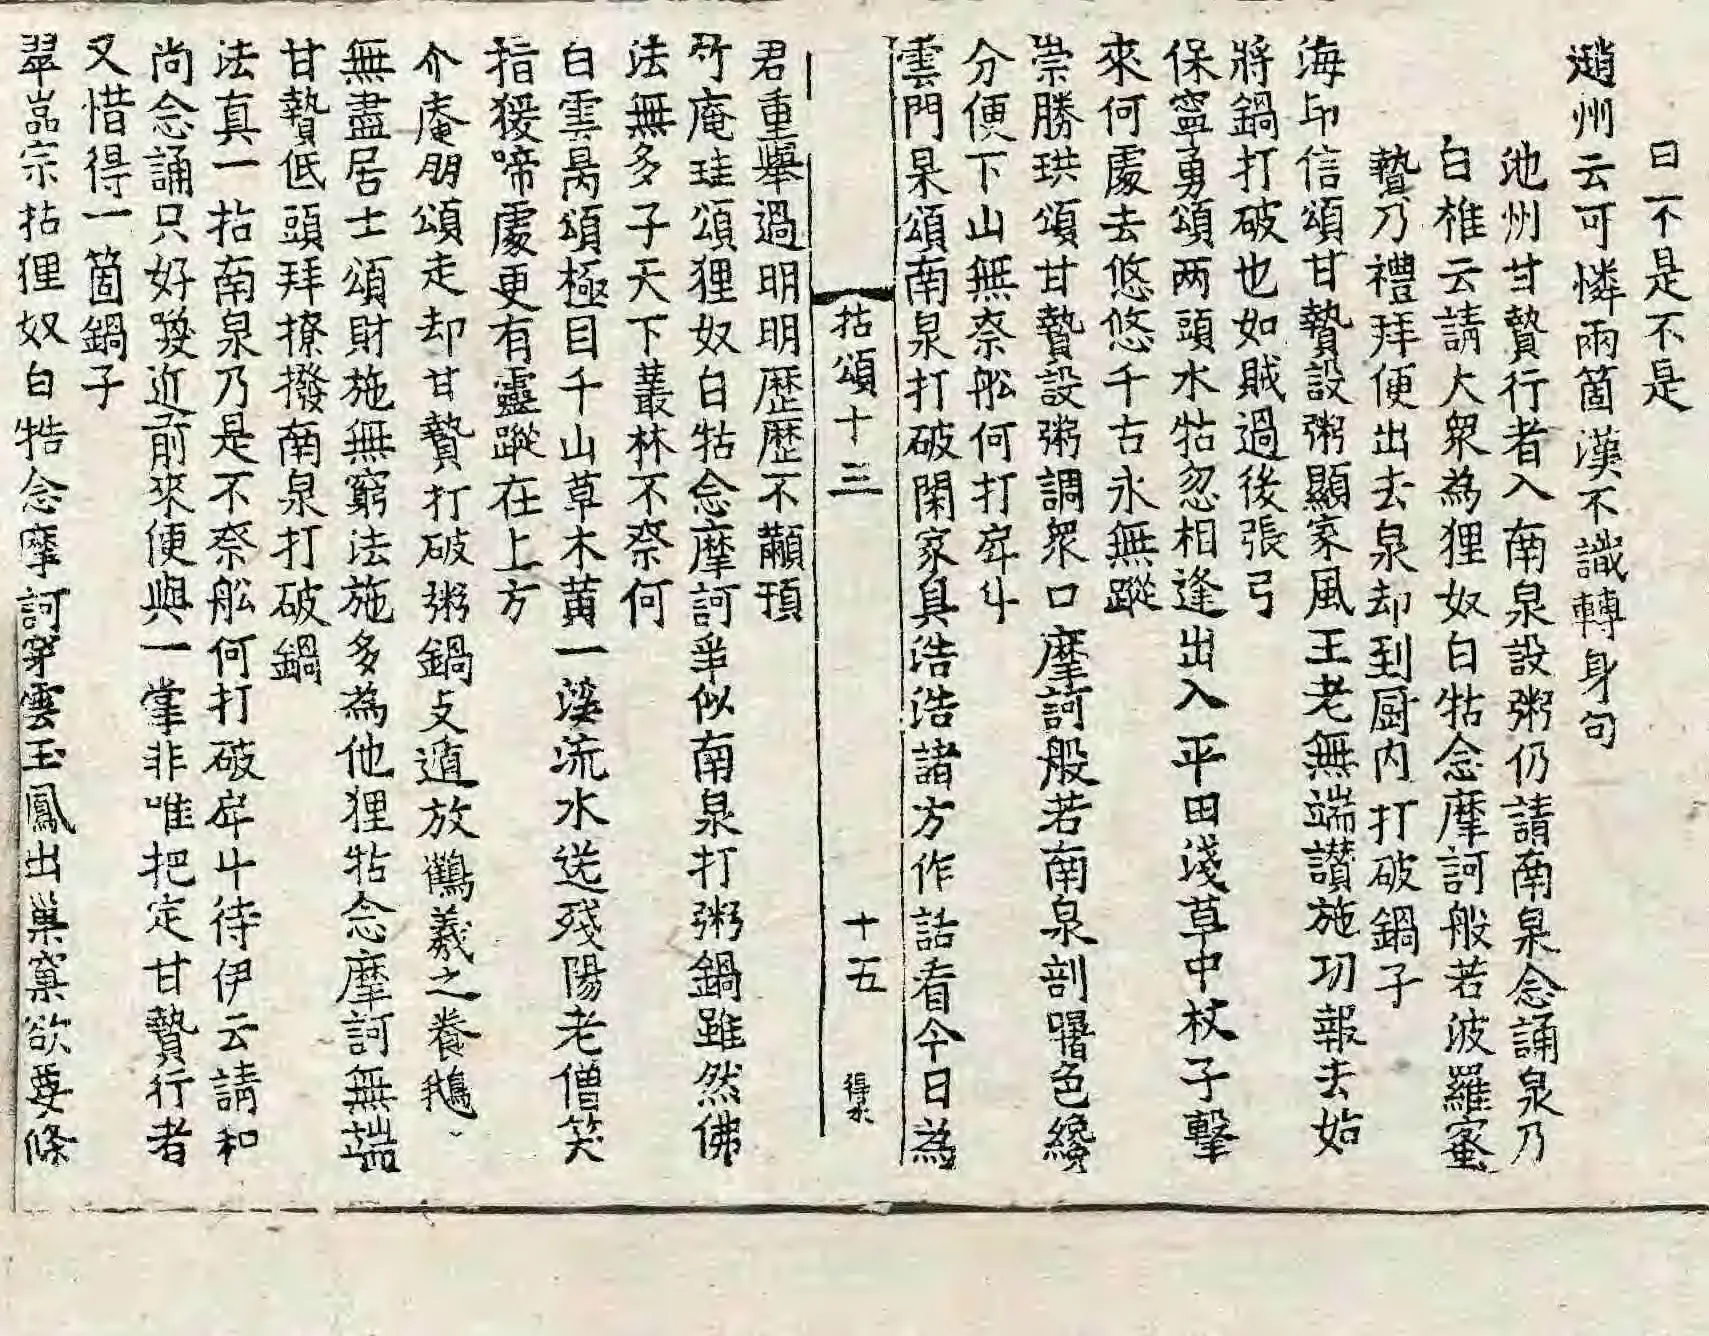 曰不是不是
趙州云可憐兩箇漢不識轉身句
池州甘贄行者入南泉設粥仍請南泉念誦泉乃
白椎云請大眾為狸奴白牯念摩訶般若波羅蜜
贄乃禮拜便出去泉却到厨内打破鍋子
海印信頌甘贄設粥顯家風王老無端讃施功報去始
將鍋打破也如賊過後張弓
保寧勇頌两頭水牯忽相逢出入平田淺草中杖子擊
來何處去悠悠千古永無蹤
崇勝珙頌甘贄設粥調眾口摩訶般若南泉剖曙色纔
分便下山無柰舩何打戽斗
雲門杲頌南泉打破閑家具浩浩諸方作話看今日為
拈頌十三
十五
得氷
君重舉過明明歷歷不顢頇
竹庵珪頌狸奴白牯念摩訶爭似南泉打粥鍋雖然佛
法無多子天下叢林不柰何
白雲昺頌極目千山草木黄一溪流水送殘陽老僧笑
指猨啼處更有靈蹤在上方
介庵朋頌走却甘贄打破粥鍋支遁放鶴羲之養鵝
無盡居士頌財施無窮法施多為他狸牯念摩訶無端
甘贄低頭拜撩撥南泉打破鍋
法真一拈南泉乃是不柰舩何打破戽斗待伊云請和
尚念誦只好喚近前來便與一掌非唯把定甘贄行者
又惜得一箇鍋子
翠嵓宗拈狸奴白牯念摩訶穿雲玉鳳出巢窠欲要條